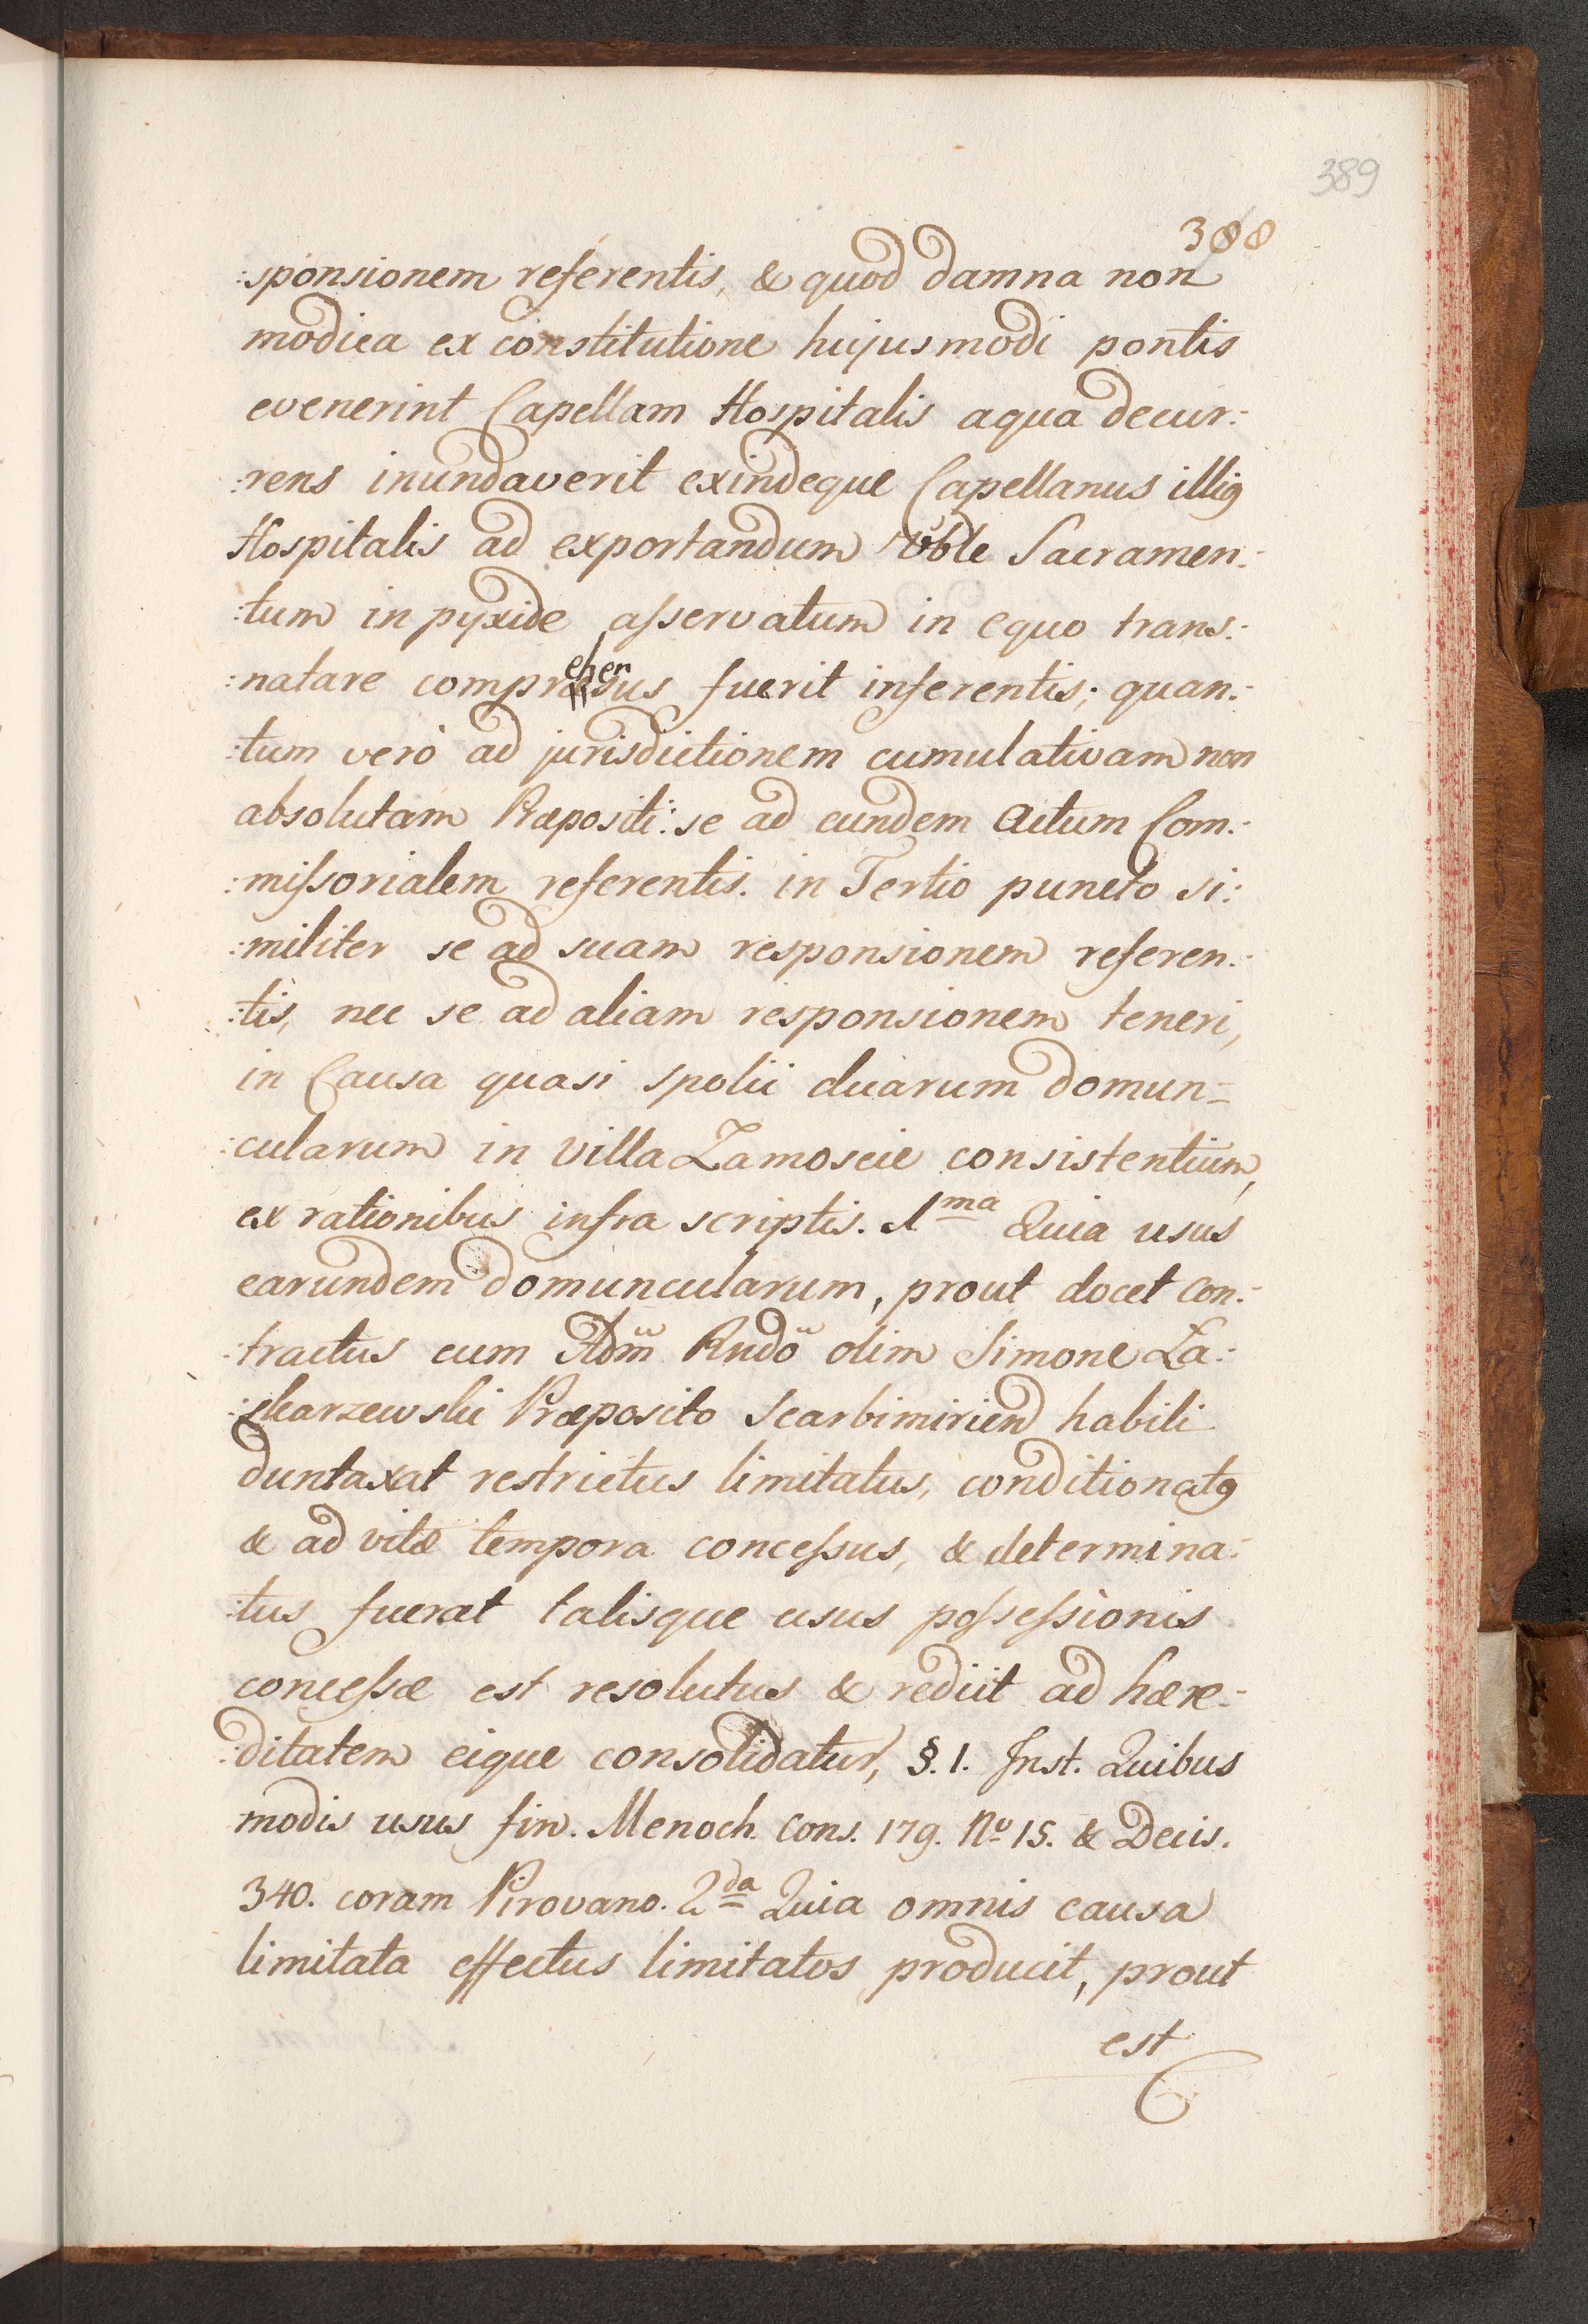 389
388
:sponsionem referentis, & quod damna non
modica ex constitutione hujusmodi pontis
evenerint Capellam Hospitalis aqua decur:
:rens inundaverit exindeque Capellanus illi9
Hospitalis ad exportandum Vbīle Sacramen:
:tum in pyxide asservatum in equo trans:
:natare comprehensus fuerit inferentis; quan:
:tum verò ad jurisdictionem cumulativam non
absolutam Præpositi: se ad eundem Actum Com:
:missorialem referentis. in Tertio puncto si:
:militer se ad suam responsionem referen:
:tis, nec se ad aliam responsionem teneri,
in Causa quasi spolii duarum domun=
:cularum in villa Zamoscie consistentium,
ex rationibus infra scriptis. 1ma Quia usus
earundem domuncularum, prout docet Con:
:tractus cum Adm̃ Rndõ olim Simone Za:
:skarzewski Præposito Scarbimirien habili
duntaxat restrictus limitatus, conditionat9
& ad vitæ tempora concessus, & determina:
:tus fuerat talisque usus possessionis
concessæ est resolutus & rediit ad hære:
:ditatem eique consolidatur, §. 1. Inst. Quibus
modis usus fin. Menoch. Cons. 179. No 15. & Decis.
340. coram Pirovano. 2da Quia omnis causa
limitata effectus limitatos producit, prout
est